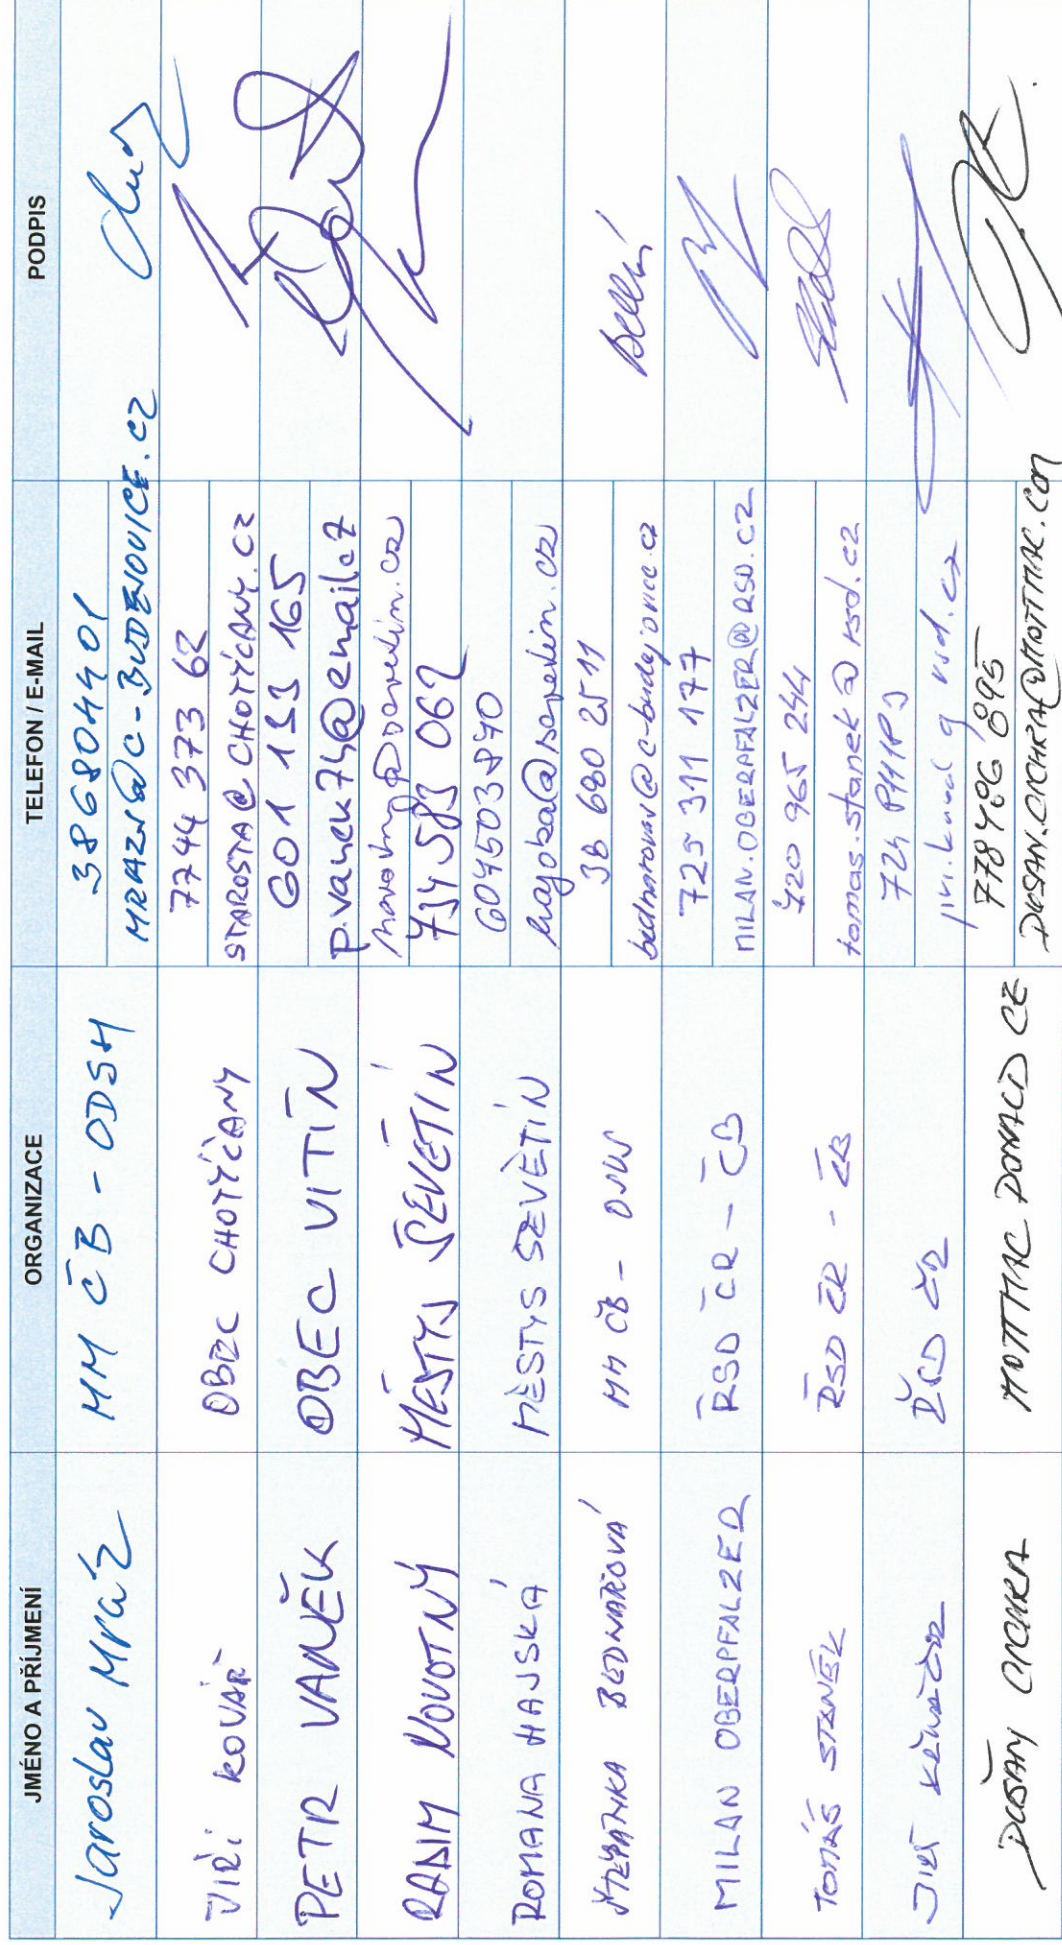 JMÉNO A PŘÍJMENÍ ORGANIZACE TELEFON / E-MAIL PODPIS
Jaroslav Mráz MM ČB - ODSH 386804401
MRAZJ@C-BUDEJOVICE.CZ
JIŘÍ KOVÁŘ OBEC CHOTÝČANY 7744 373 62
STAROSTA@CHOTYCANY.CZ
PETR VANĚK OBEC VITÍN 601 133 165
p.vanek74@email.cz
RADIM NOVOTNÝ MĚSTYS ŠEVĚTÍN novotny@sevetin.cz
734 583 062
ROMANA HAJSKÁ MĚSTYS SEVĚTÍN 604503840
hajska@sevetin.cz
ŠTĚPÁNKA BEDNAŘOVÁ MM ČB - 38 680 2511
bednarovas@c-budejovice.cz
MILAN OBERPFALZER ŘSD ČR - ČB 725 311 177
MILAN.OBERPFALZER@RSD.CZ
TOMÁŠ STANĚK ŘSD ČR - ČB 720 965 244
tomas.stanek@rsd.cz
JIŘÍ ŘSD ČR 724
rsd.cz
DUŠAN CICHRA MOTTMAC DONALD CZ 778 486 895
DUSAN.CICHRA@MOTTMAC.COM